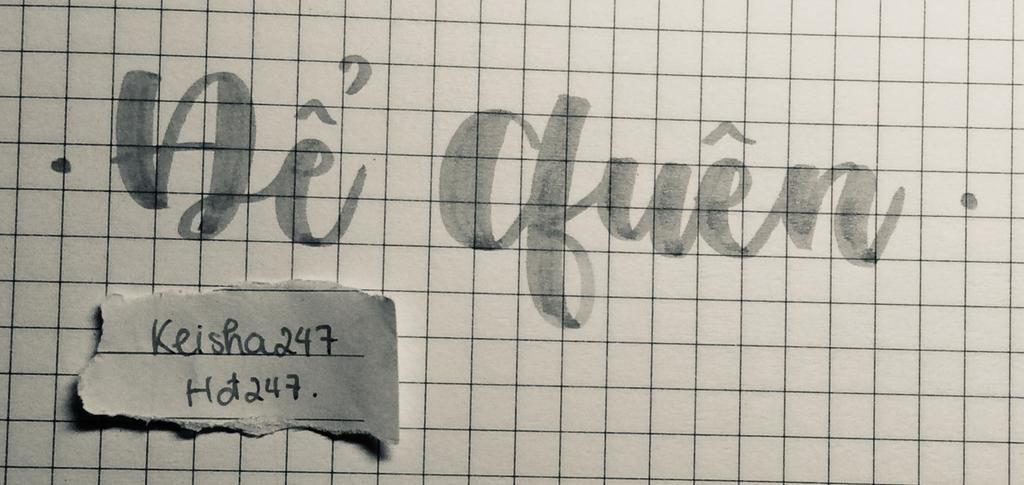 Để Quên
Keisha247
Hđ247.